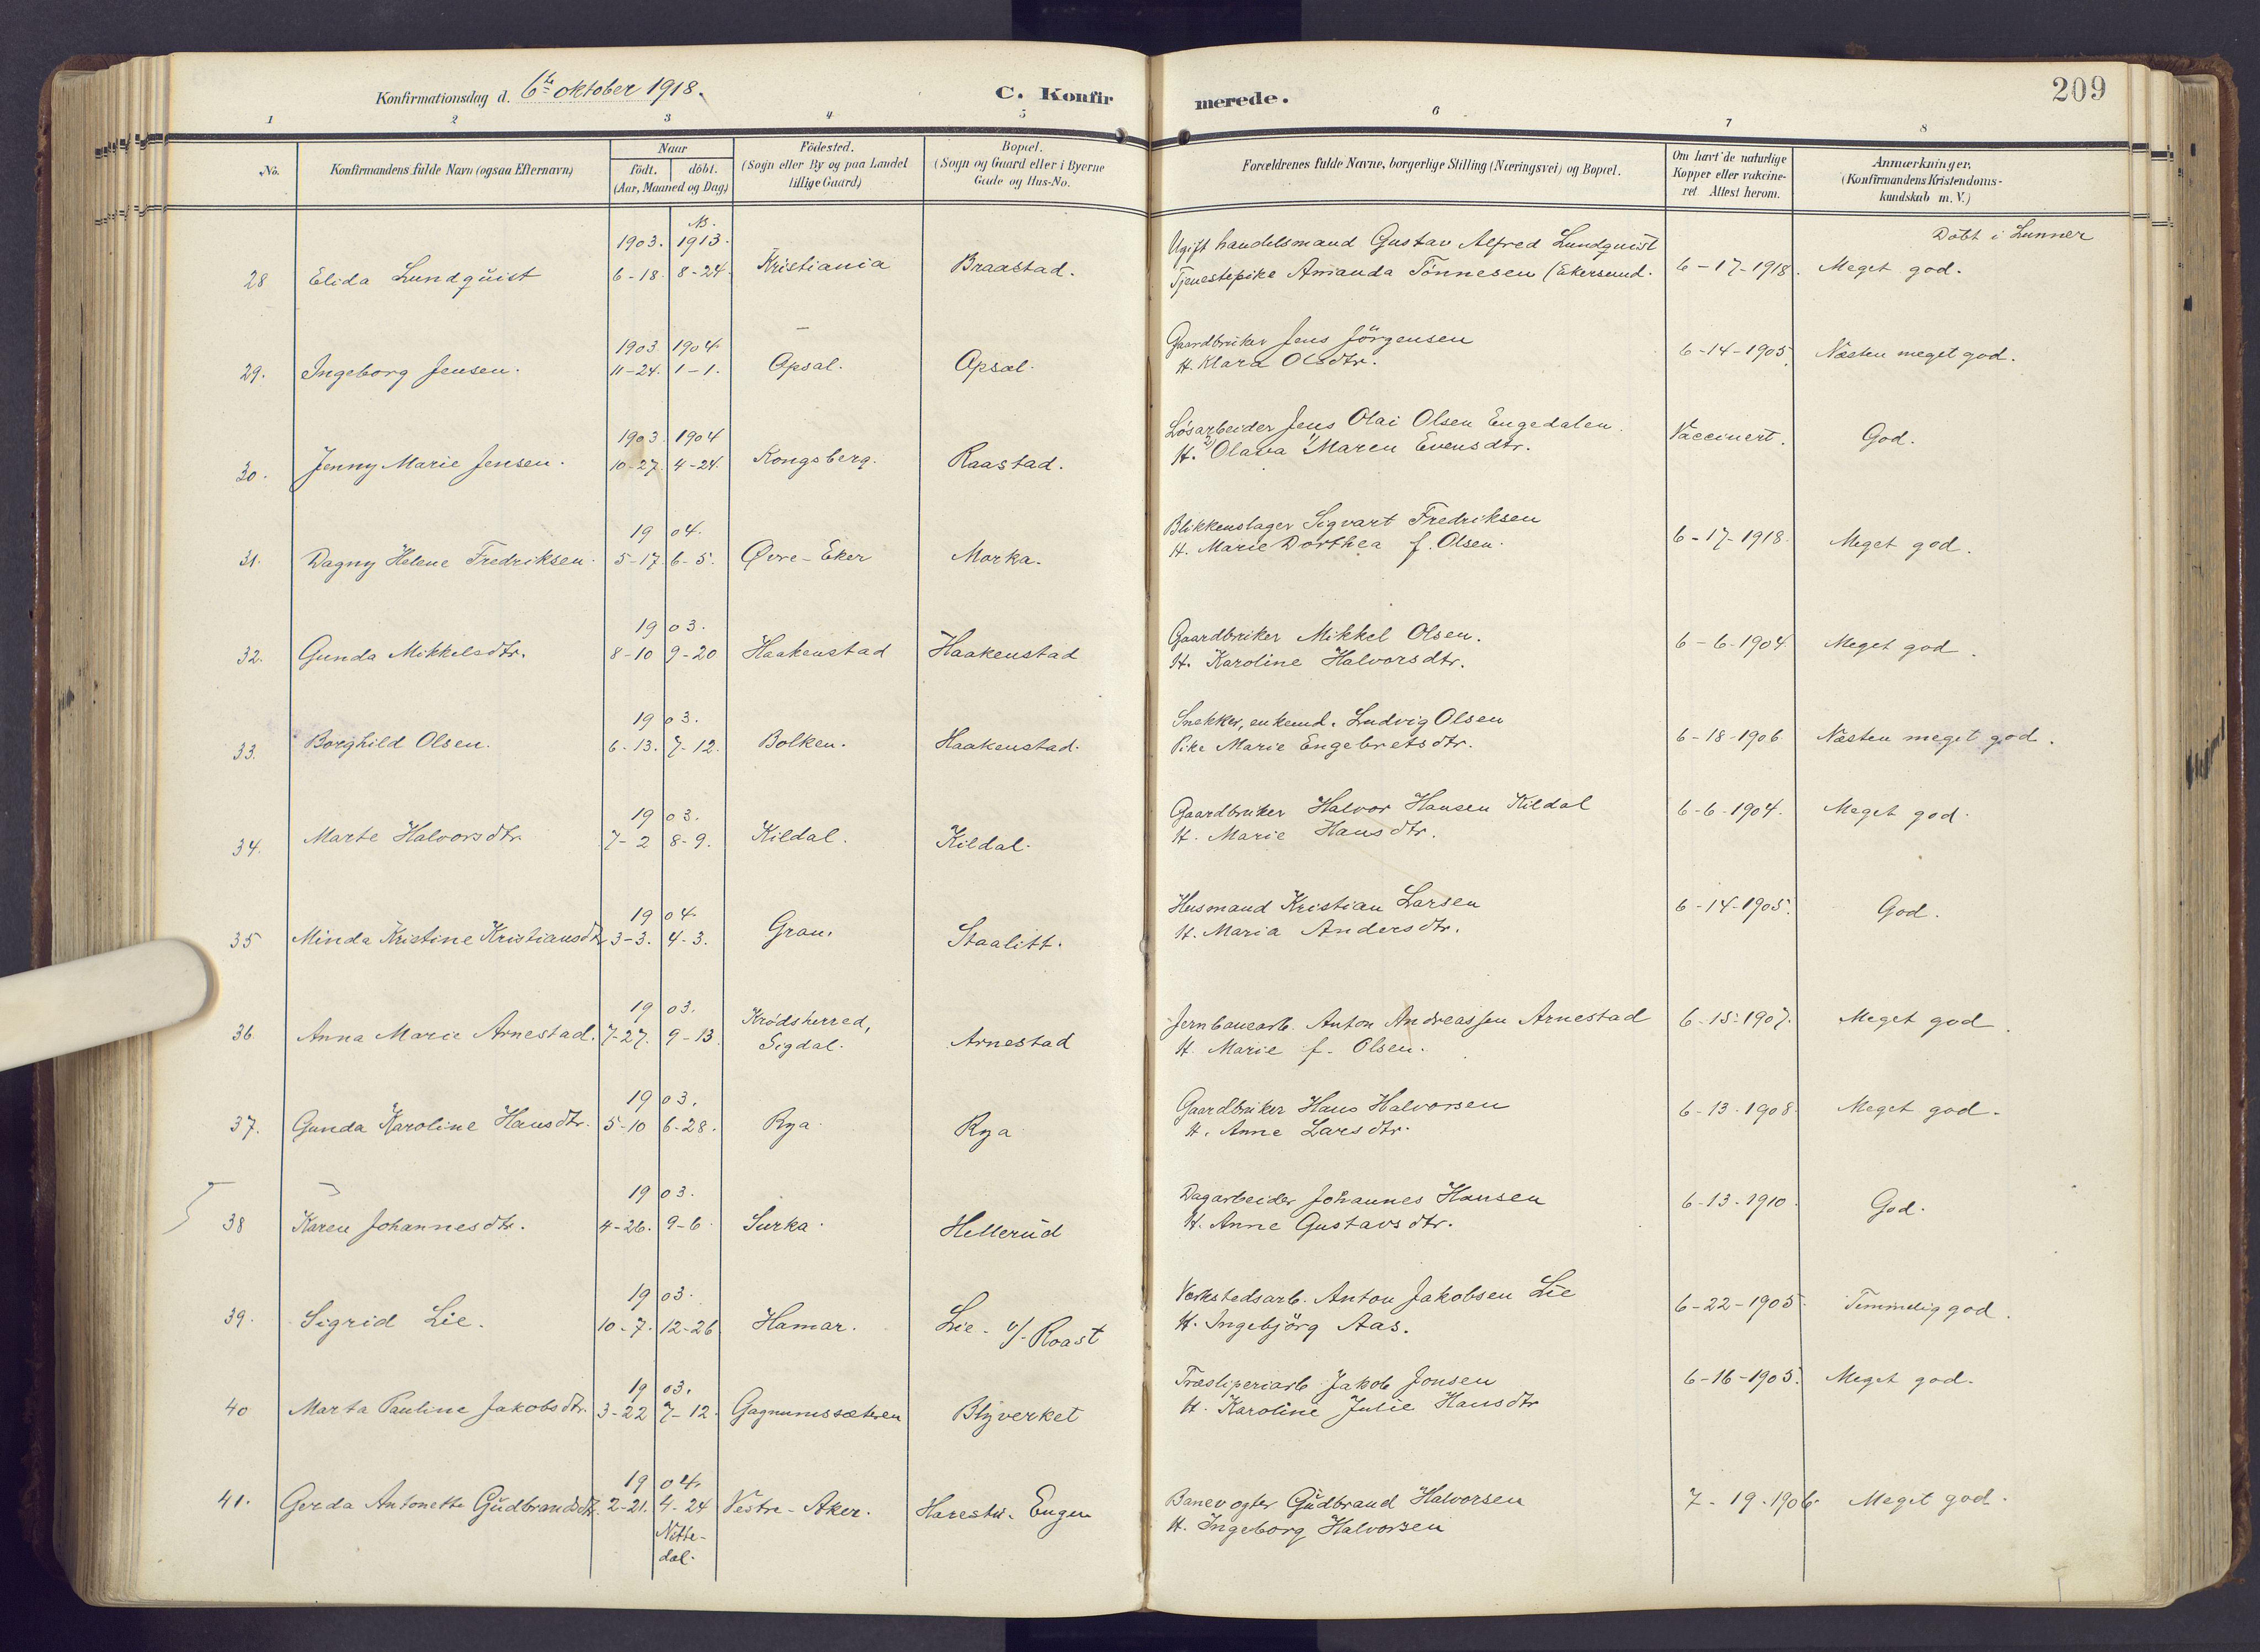 Konfirmationsdag d. 6te oktober 1918.
C. Konfirmerede.
209
1 2 3 4 5 6 7 8
No.
Konfirmandens fulde Navn (ogsaa Efternavn)
Naar
födt. döbt.
(Aar, Maaned og Dag)
Födested.
(Sogn eller By og paa Landet
tillige Gaard)
Bopæl.
(Sogn og Gaard eller i Byerne
Gade og Hus-No.
Forældrenes fulde Navne, borgerlige Stilling (Næringsvei) og Bopæl.
Om havt de naturlige
Kopper eller vakcine-
ret Attest herom.
Anmærkninger.
(Konfirmandens Kristendoms-
kundskab m. V.)
N.
1903. 1913. Ugift handelsmand Gustav Alfred Lundquist Döbt i Lunner
28 Elida Lundquist 6-18. 8-24. Kristiania Braastad. Tjenestepike Amanda Tönnesen (Ekersund. 6-17-1918. Meget god.
1903 1904 Gaardbruker Jens Jörgensen
29. Ingeborg Jensen. 11-24. 1-1. Opsal. Opsal. H. Klara Olsdtr. 6-14-1905. Næsten meget god.
1903. 1904 Lösarbeider Jens Olai Olsen Engedalen.
30. Jenny Marie Jensen. 10-27. 4-24. Kongsberg. Raastad. H. 2) Olava 1) Maren Evensdtr. Vaccinert. God.
1904. Blikkenslager Sigvart Fredriksen
31. Dagny Helene Fredriksen. 5-17. 6-5. Øvre-Eker Morka. H. Marie Dorthea f. Olsen. 6-17-1918. Meget god.
1903. Gaardbruker Mikkel Olsen.
32. Gunda Mikkelsdtr. 8-10 9-20 Haakenstad Haakenstad H. Karoline Halvorsdtr. 6-6-1904. Meget god.
1903. Snekker, enkemd. Ludvig Olsen
33. Borghild Olsen. 6-13. 7-12. Bolken. Haakenstad. Pike Marie Engebretsdtr. 6-18-1906 Næsten meget god.
1903. Gaardbruker Halvor Hansen Kildal
34. Marte Halvorsdtr. 7-2 8-9. Kildal. Kildal. H. Marie Hansdtr. 6-6-1904. Meget god.
1904. Husmand Kristian Larsen
35 Minda Kristine Kristiansdtr 3-3. 4-3. Gran. Staalitt. H. Maria Andersdtr. 6-14-1905. God.
1903. Krödsherred, Jernbanearb. Anton Andreassen Arnestad
36. Anna Marie Arnestad. 7-27. 9-13. Sigdal. Arnestad H. Marie f. Olsen. 6-15-1907. Meget god.
1903. Gaardbruker Hans Halvorsen
37. Gunda Karoline Hansdtr. 5-10 6-28. Rya. Rya H. Anne Larsdtr. 6-13-1908. Meget god.
1903. Dagarbeider Johannes Hansen
38 Karen Johannesdtr. 4-26. 9-6. Surka. Hellerud H. Anne Gustavsdtr. 6-13-1910. God.
1903. Verkstedsarb. Anton Jakobsen Lie
39. Sigrid Lie. 10-7. 12-26 Hamar. Lie. v/ Roast H. Ingebjörg Aas. 6-22-1905. Temmelig god.
1903. Træsliperiarb Jakob Jonsen
40 Marta Pauline Jakobsdtr. 3-22 7-12. Gagnumssæteren Blyverket H. Karoline Julie Hansdtr 6-16-1905. Meget god.
1904. Banevogter Gudbrand Halvorsen
41. Gerda Antonette Gudbrandsdtr. 2-21. 4-24 Vestre-Aker. Harestu. Engen H. Ingeborg Halvorsen 7-19-1906. Meget god.
Nitte-
dal.